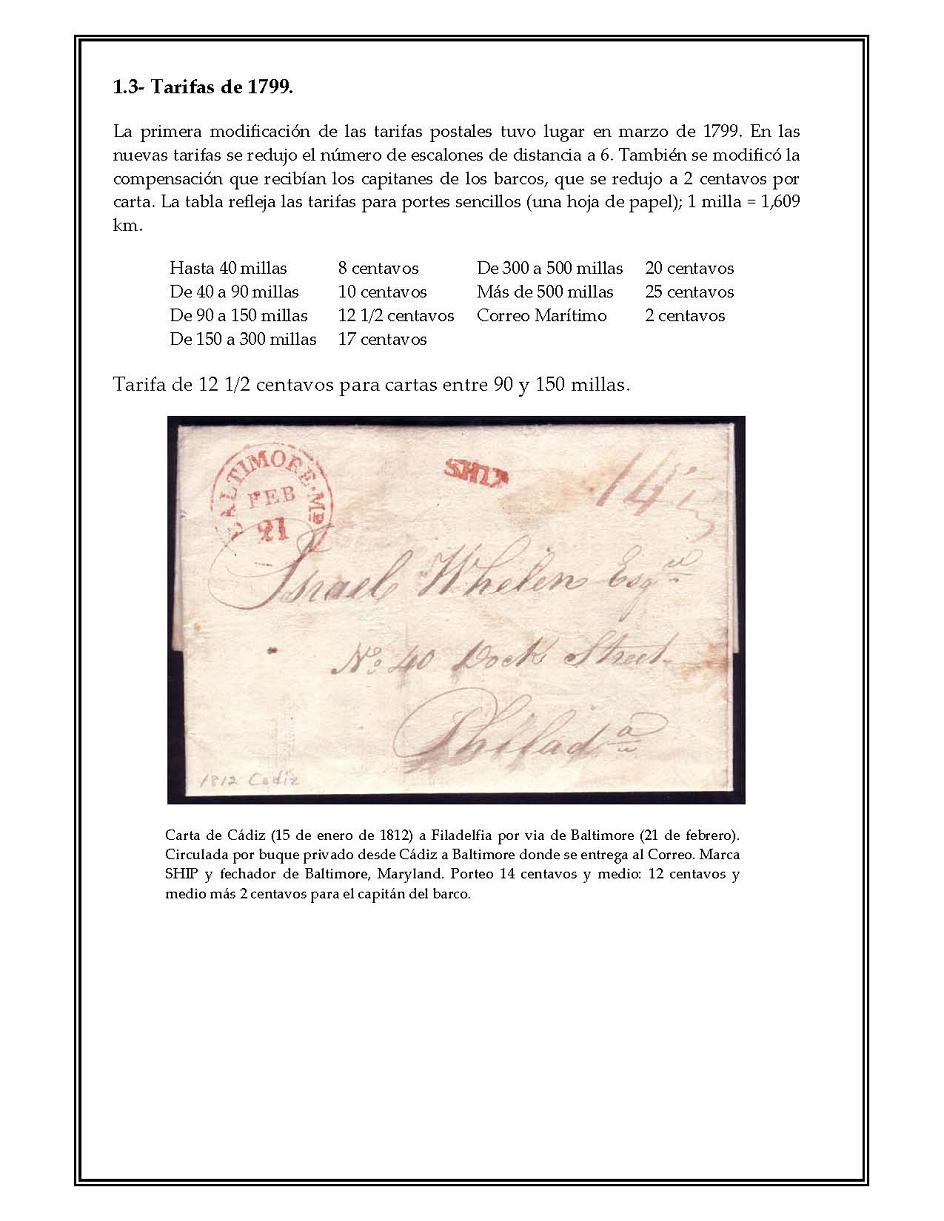 1.3- Tarifas de 1799.
La primera modificación de las tarifas postales tuvo lugar en marzo de 1799. En las
nuevas tarifas se redujo el número de escalones de distancia a 6. También se modificó la
compensación que recibían los capitanes de los barcos, que se redujo a 2 centavos por
carta. La tabla refleja las tarifas para portes sencillos (una hoja de papel); 1 milla = 1,609
km.
Hasta 40 millas 8 centavos De 300 a 500 millas 20 centavos
De 40 a 90 millas 10 centavos Más de 500 millas 25 centavos
De 90 a 150 millas 12 1/2 centavos Correo Marítimo 2 centavos
De 150 a 300 millas 17 centavos
Tarifa de 12 1/2 centavos para cartas entre 90 y 150 millas.
BALTIMORE·MD
FEB
21
SHIP
14 1/2
Israel Whelen Esqr
No 40 Dock Street
Philada
1812 Cadiz
Carta de Cádiz (15 de enero de 1812) a Filadelfia por via de Baltimore (21 de febrero).
Circulada por buque privado desde Cádiz a Baltimore donde se entrega al Correo. Marca
SHIP y fechador de Baltimore, Maryland. Porteo 14 centavos y medio: 12 centavos y
medio más 2 centavos para el capitán del barco.